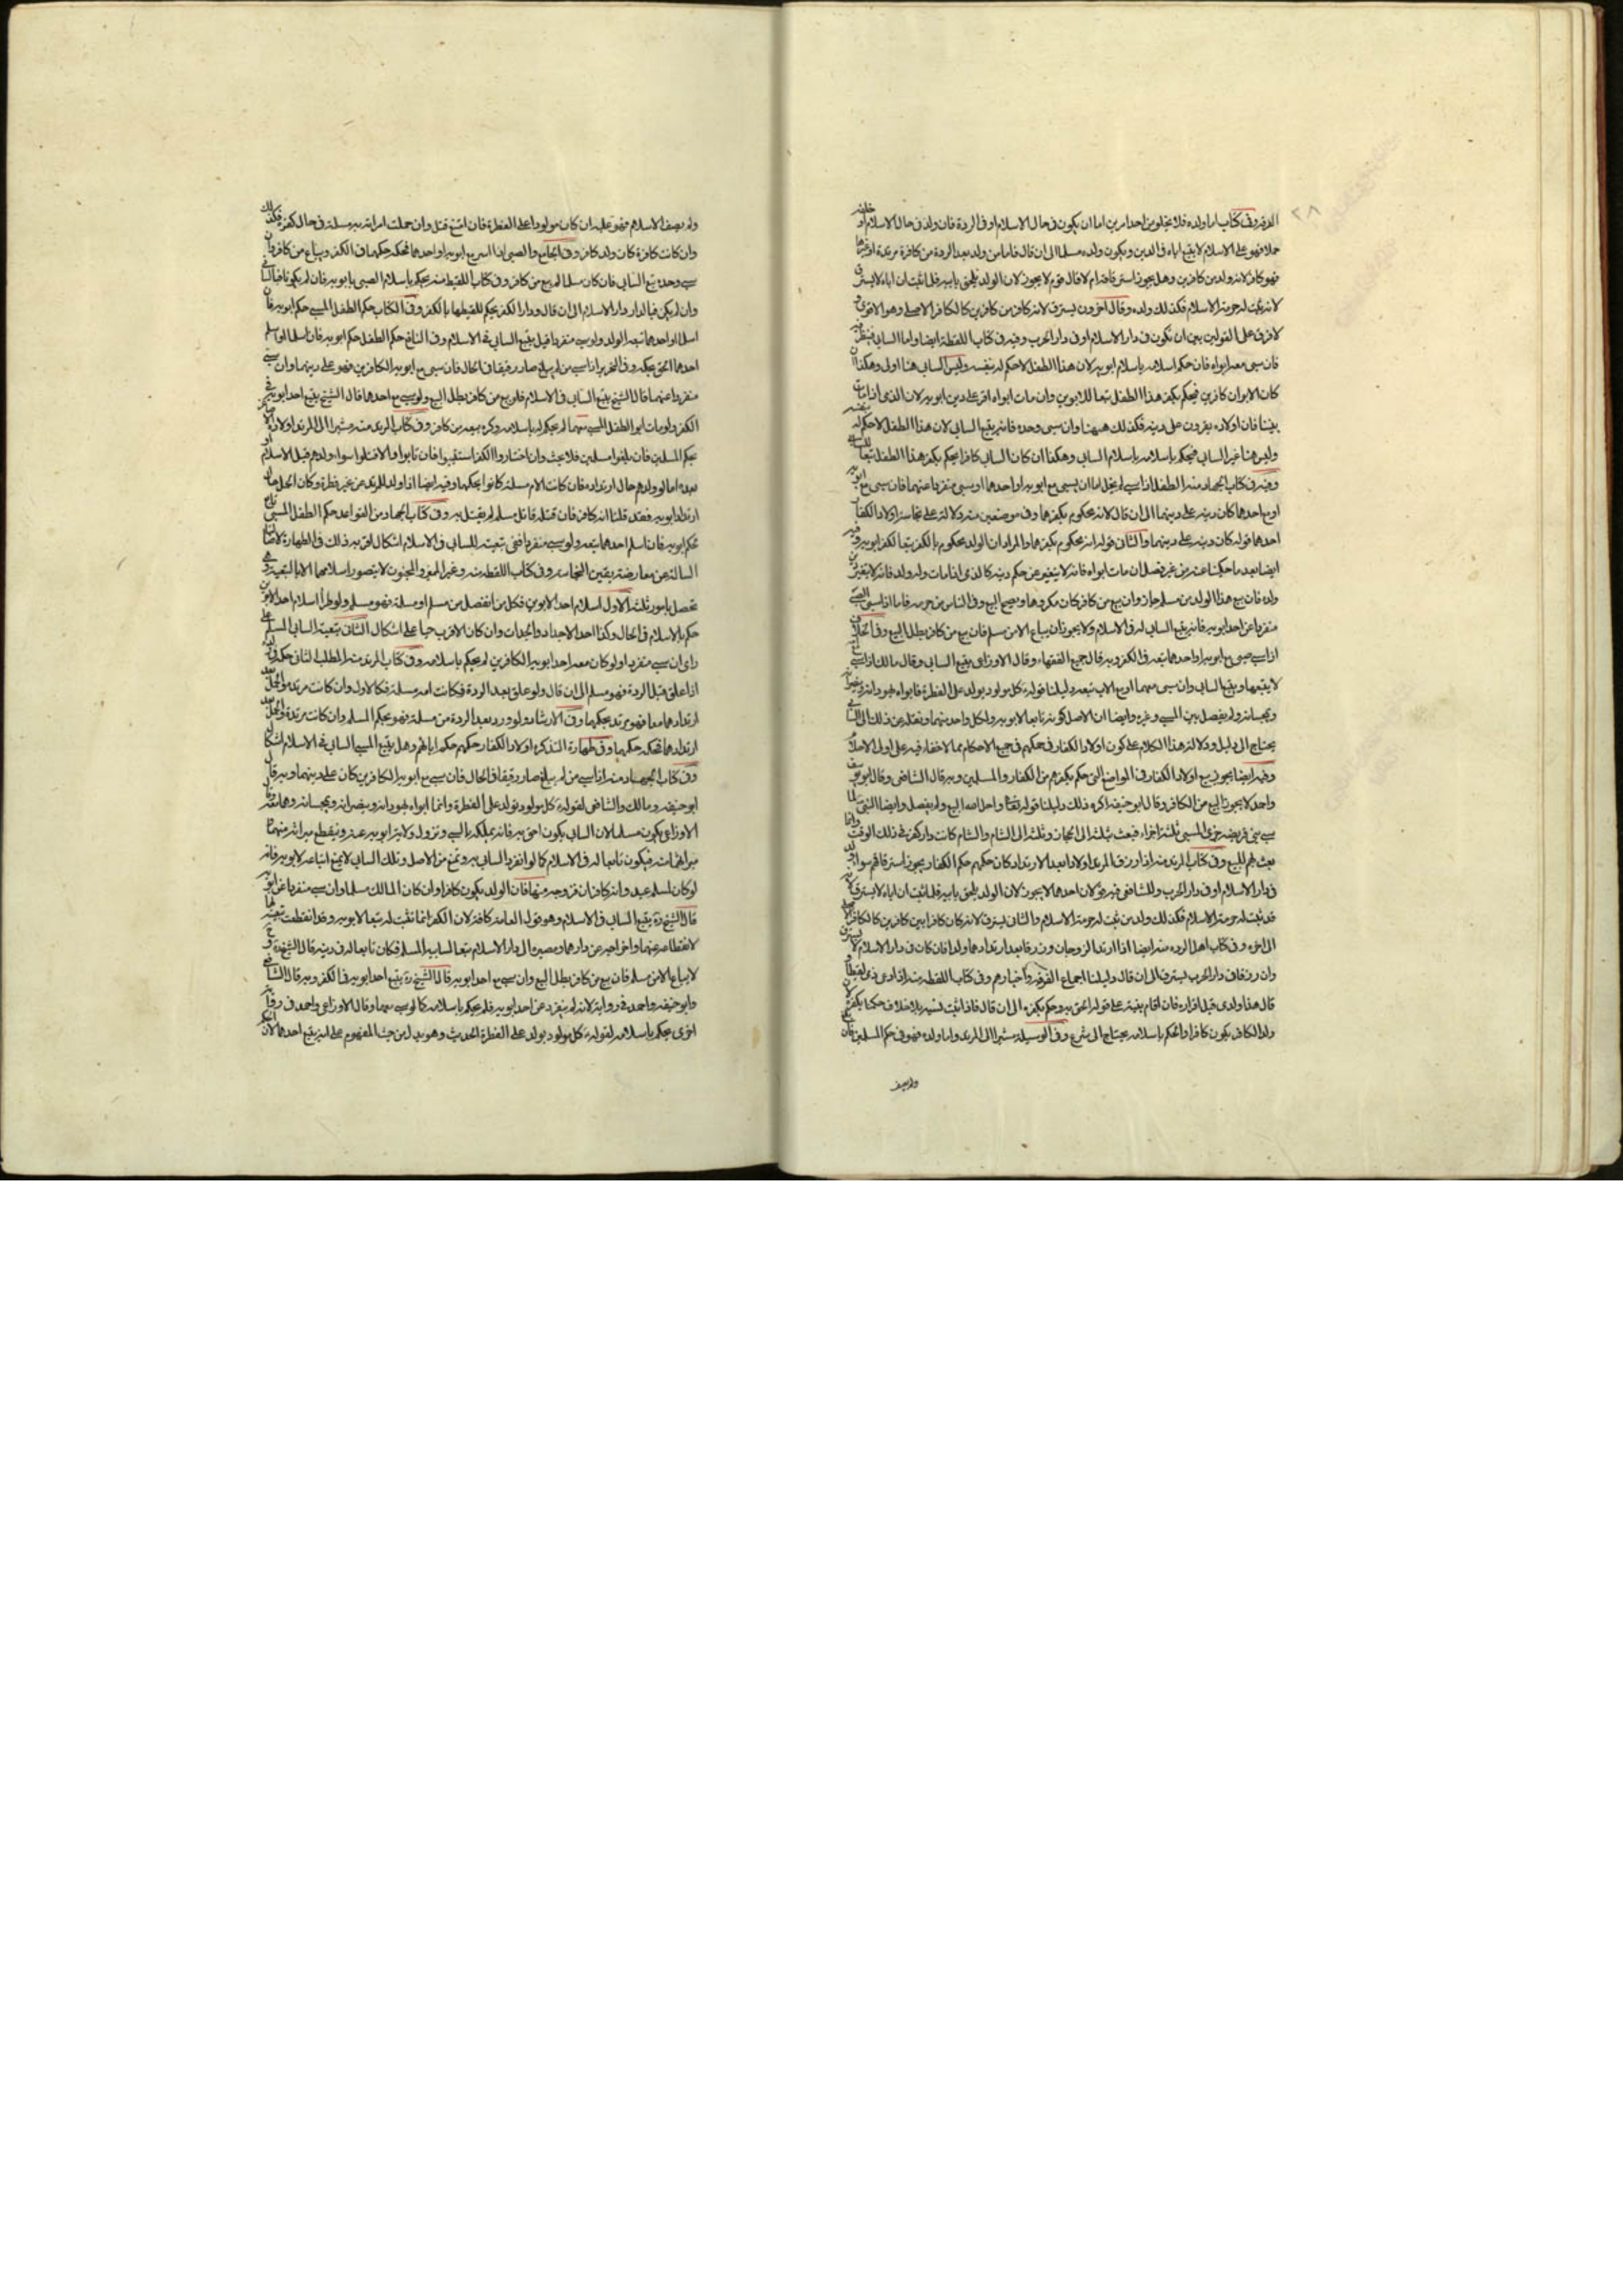 الردة وفي كتاب اما ولده فلا يخلو من احد امرين اما ان يكون في حال الاسلام او في الردة فان ولد في حال الاسلام او خلق
حملا فهو على الاسلام لا يتبع اباه في الدين ويكون ولده مسلما الى ان قال فاما من ولد بعد الردة من كافرة مرتدة او غيرها
فهو كافر لانه ولد من كافرين وهل يجوز استرقاقه ام لا قال قوم لا يجوز لان الولد يلحق بابيه فلما ثبت ان اباه لا يسترق
لانه ثبت له حرمة الاسلام فكذلك ولده وقال آخرون يسترق لانه كافر من كافرين كالكافر الاصلي وهو الاقوى و
لا فرق على القولين بين ان يكون في دار الاسلام او في دار الحرب وفيه في كتاب اللقطة ايضا واما السابي فينظر فيه
فان سبي معه ابواه فان حكم اسلامه باسلام ابويه لان هذا الطفل لا حكم له بنفسه وليس السابي هنا اولى وهكذا ان
كان الابوان كافرين فيحكم بكفر هذا الطفل تبعا للابوين وان مات ابواه اقر على دين ابويه لان الذمي اذا مات
بيننا فان اولاده يقرون على دينه فكذلك ههنا وان سبي وحده فانه يتبع السابي لان هذا الطفل لا حكم له بنفسه
وليس هنا غير السابي فيحكم باسلامه باسلام السابي وهكذا ان كان السابي كافرا يحكم بكفر هذا الطفل تبعا للسابي
وفيه في كتاب الجهاد منه الطفل اذا سبي لم يخل اما ان يسبى مع ابويه او احدهما او سبي منفردا عنهما فان سبي مع ابويه
او مع احدهما كان دينه على دينهما الى ان قال لانه محكوم بكفرهما وفي موضعين منه دلالة على نجاسة اولاد الكفار
احدهما قوله كان دينه على دينهما والثاني قوله انه محكوم بكفرهما والمراد ان الولد محكوم بالكفر تبعا لكفر ابويه وفيه
ايضا بعد ما حكينا عنه من غير فصل ان مات ابواه فانه لا يتغير عن حكم دينه كالذمي اذا مات وله ولد فانه لا يتغير دين
ولده فان بيع هذا الولد من مسلم جاز وان بيع من كافر كان مكروها ويصح البيع وفي الناس من حرمه فاما اذا سبي الصبي
منفردا عن احد ابويه فانه يتبع السابي له في الاسلام ولا يجوز ان يباع الا من مسلم فان بيع من كافر بطل البيع وفي الخلاف
اذا سبي صبي مع ابويه او احدهما تبعه في الكفر وبه قال جميع الفقهاء وقال الاوزاعي يتبع السابي وقال مالك اذا سبي
لا يتبعها ويتبع السابي وان سبي معهما او مع الاب تبعه دليلنا قوله كل مولود يولد على الفطرة فابواه يهودانه وينصرانه
ويمجسانه ولم يفصل بين المسبي وغيره وايضا ان الاصل كونه تابعا لابويه ولكل واحد منهما ونقله عن ذلك الى السابي
يحتاج الى دليل ودلالة هذا الكلام على كون اولاد الكفار في حكمهم في جميع الاحكام مما لا خفاء فيه على اولي الاحلام
وفيه ايضا يجوز بيع اولاد الكفار في المواضع التي حكم بكفرهم من الكفار والمسلمين وبه قال الشافعي وقال ابو يوسف
واحد لا يجوز البيع من الكافر وقال ابو حنيفة اكره ذلك دليلنا قوله تعالى واحل الله البيع ولم يفصل وايضا النبي لما
سبى بني قريظة جزى المسبى ثلثة اجزاء فبعث بثلثه الى الحجاز وثلثه الى الشام والشام كانت دار كفر في ذلك الوقت وانما
بعث لهم للبيع وفي كتاب المرتد منه اذا رزق المرتد اولادا بعد الارتداد كان حكمهم حكم الكفار يجوز استرقاقهم سواء ولد
في دار الاسلام او في دار الحرب وللشافعي فيه قولان احدهما لا يجوز لان الولد يلحق بابيه فلما ثبت ان اباه لا يسترق لانه
قد ثبت له حرمة الاسلام فكذلك ولد من ثبت له حرمة الاسلام والثاني يسترق لانه كان كافرا بين كافرين كالكافر الاصلي
الى آخره وفي كتاب اهل الردة منه ايضا اذا ارتد الزوجان ورزقا بعد ارتدادهما ولدا فان كان في دار الاسلام لا يسترق
وان رزقا في دار الحرب يسترق الى ان قال دليلنا اجماع الفرقة واخبارهم وفي كتاب اللقطة منه اذا ادعى ذمي لقيطا و
قال هذا ولدي قبل اقراره فان اقام بينة على قوله الحق به وحكم بكفره الى ان قال فاذا ثبت نسبه بلا خلاف حكمنا بكفره لان
ولد الكافر يكون كافرا والحكم باسلامه يحتاج الى شرع وفي الوسيلة مشيرا الى المرتد واما ولده فهو في حكم المسلمين فان بلغ
ولم يصف
ولم يصف الاسلام فهو عليه ان كان مولودا على الفطرة فان امتنع قتل وان حملت امرأته به مسلمة في حال كفره فكذلك
وان كانت كافرة كان ولده كافرا وفي الجامع والصبي اذا اسر مع ابويه او احدهما فحكمه حكمهما في الكفر ويباع من كافر وان
سبي وحده تبع السابي فان كان مسلما لم يبع من كافر وفي كتاب اللقيط منه يحكم باسلام الصبي بابويه فان لم يكونا فبالسابي
وان لم يكن فبالدار دار الاسلام الى ان قال ودار الكفر يحكم للقيطها بالكفر وفي الكتاب حكم الطفل المسبي حكم ابويه فان
اسلما او احدهما تبعه الولد ولو سبي منفردا قيل يتبع السابي في الاسلام وفي النافع حكم الطفل حكم ابويه فان اسلما او اسلم
احدهما الحق بحكمه وفي التحرير اذا سبي من لم يبلغ صار رقيقا في الحال فان سبي مع ابويه الكافرين فهو على دينهما وان سبي
منفردا عنهما قال الشيخ يتبع السابي في الاسلام فلو بيع من كافر بطل البيع ولو سبي مع احدهما قال الشيخ يتبع احد ابويه في
الكفر ولو مات ابوا الطفل المسبي معهما لم يحكم له باسلامه وكره بيعه من كافر وفي كتاب المرتد منه مشيرا الى المرتد اولاده الاصاغر
بحكم المسلمين فان بلغوا مسلمين فلا بحث وان اختاروا الكفر استتيبوا فان تابوا والا قتلوا سواء ولدهم قبل الاسلام او
بعده اما لو ولدهم حال ارتداده فان كانت الام مسلمة كانوا بحكمها وفيه ايضا اذا ولد للمرتد عن غير فطرة وكان الحمل حال
ارتداد ابويه فقد قلنا انه كافر فان قتله قاتل مسلم لم يقتل به وفي كتاب الجهاد من القواعد حكم الطفل المسبي تابع
لحكم ابويه فان اسلم احدهما تبعه ولو سبي منفردا ففي تبعيته للسابي في الاسلام اشكال اقربه ذلك في الطهارة لاصالتها
السالمة عن معارضة يقين النجاسة وفي كتاب اللقطة منه وغير المميز والمجنون لا يتصور اسلامهما الا بالتبعية وهي
تحصل بامور ثلثة الاول اسلام احد الابوين فكل من انفصل من مسلم او مسلمة فهو مسلم ولو طرأ اسلام احد الابوين
حكم بالاسلام في الحال وكذا احد الاجداد والجدات وان كان الاقرب حيا على اشكال الثاني تبعية السابي المسلم على
رأي ان سبي منفردا ولو كان معه احد ابويه الكافرين لم يحكم باسلامه وفي كتاب المرتد منه المطلب الثاني حكم ولده
اذا علق قبل الردة فهو مسلم الى ان قال ولو علق بعد الردة فكانت امه مسلمة فكالاول وان كانت مرتدة والحمل بعد
ارتدادهما معا فهو مرتد بحكمهما وفي الارشاد ولو ورد بعد الردة من مسلمة فهو بحكم المسلم وان كانت مرتدة والحمل بعد
ارتدادهما فحكمه حكمهما وفي طهارة التذكرة اولاد الكفار حكمهم حكم ابائهم وهل يتبع المسبي السابي في الاسلام اشكال
وفي كتاب الجهاد منه اذا سبي من لم يبلغ صار رقيقا في الحال فان سبي مع ابويه الكافرين كان على دينهما وبه قال
ابو حنيفة ومالك والشافعي لقوله كل مولود يولد على الفطرة وانما ابواه يهودانه وينصرانه ويمجسانه وهما معه وقال
الاوزاعي يكون مسلما لان السابي يكون احق به فانه يملكه بالسبي وتزول ولاية ابويه عنه وينقطع ميراثه منهما و
ميراثهما منه فيكون تابعا له في الاسلام كما لو انفرد السابي به ونمنع من الاصل وتلك السابي لا يمنع اتباعه لابويه فانه
لو كان لمسلم عبد وامة كافران فزوجه منها فان الولد يكون كافرا وان كان المالك مسلما وان سبي منفردا عن ابويه
قال الشيخ ره يتبع السابي في الاسلام وهو قول العامة كافة لان الكفر انما ثبت له تبعا لابويه وقد انقطعت تبعيته لهما
لانقطاعه عنهما واخراجه عن دارهما ومصيره الى دار الاسلام تبعا لسابيه المسلم فكان تابعا له في دينه قال الشيخ ره و
لا يباع الا من مسلم فان بيع من كافر بطل البيع وان سبي مع احد ابويه قال الشيخ ره يتبع احد ابويه في الكفر وبه قال الشافعي
وابو حنيفة واحمد في رواية لانه لم ينفرد عن احد ابويه فلم يحكم باسلامه كما لو سبي معهما وقال الاوزاعي واحمد في رواية
اخرى يحكم باسلامه لقوله كل مولود يولد على الفطرة الحديث وهو يدل من حيث المفهوم على انه يتبع احدهما لان الحكم